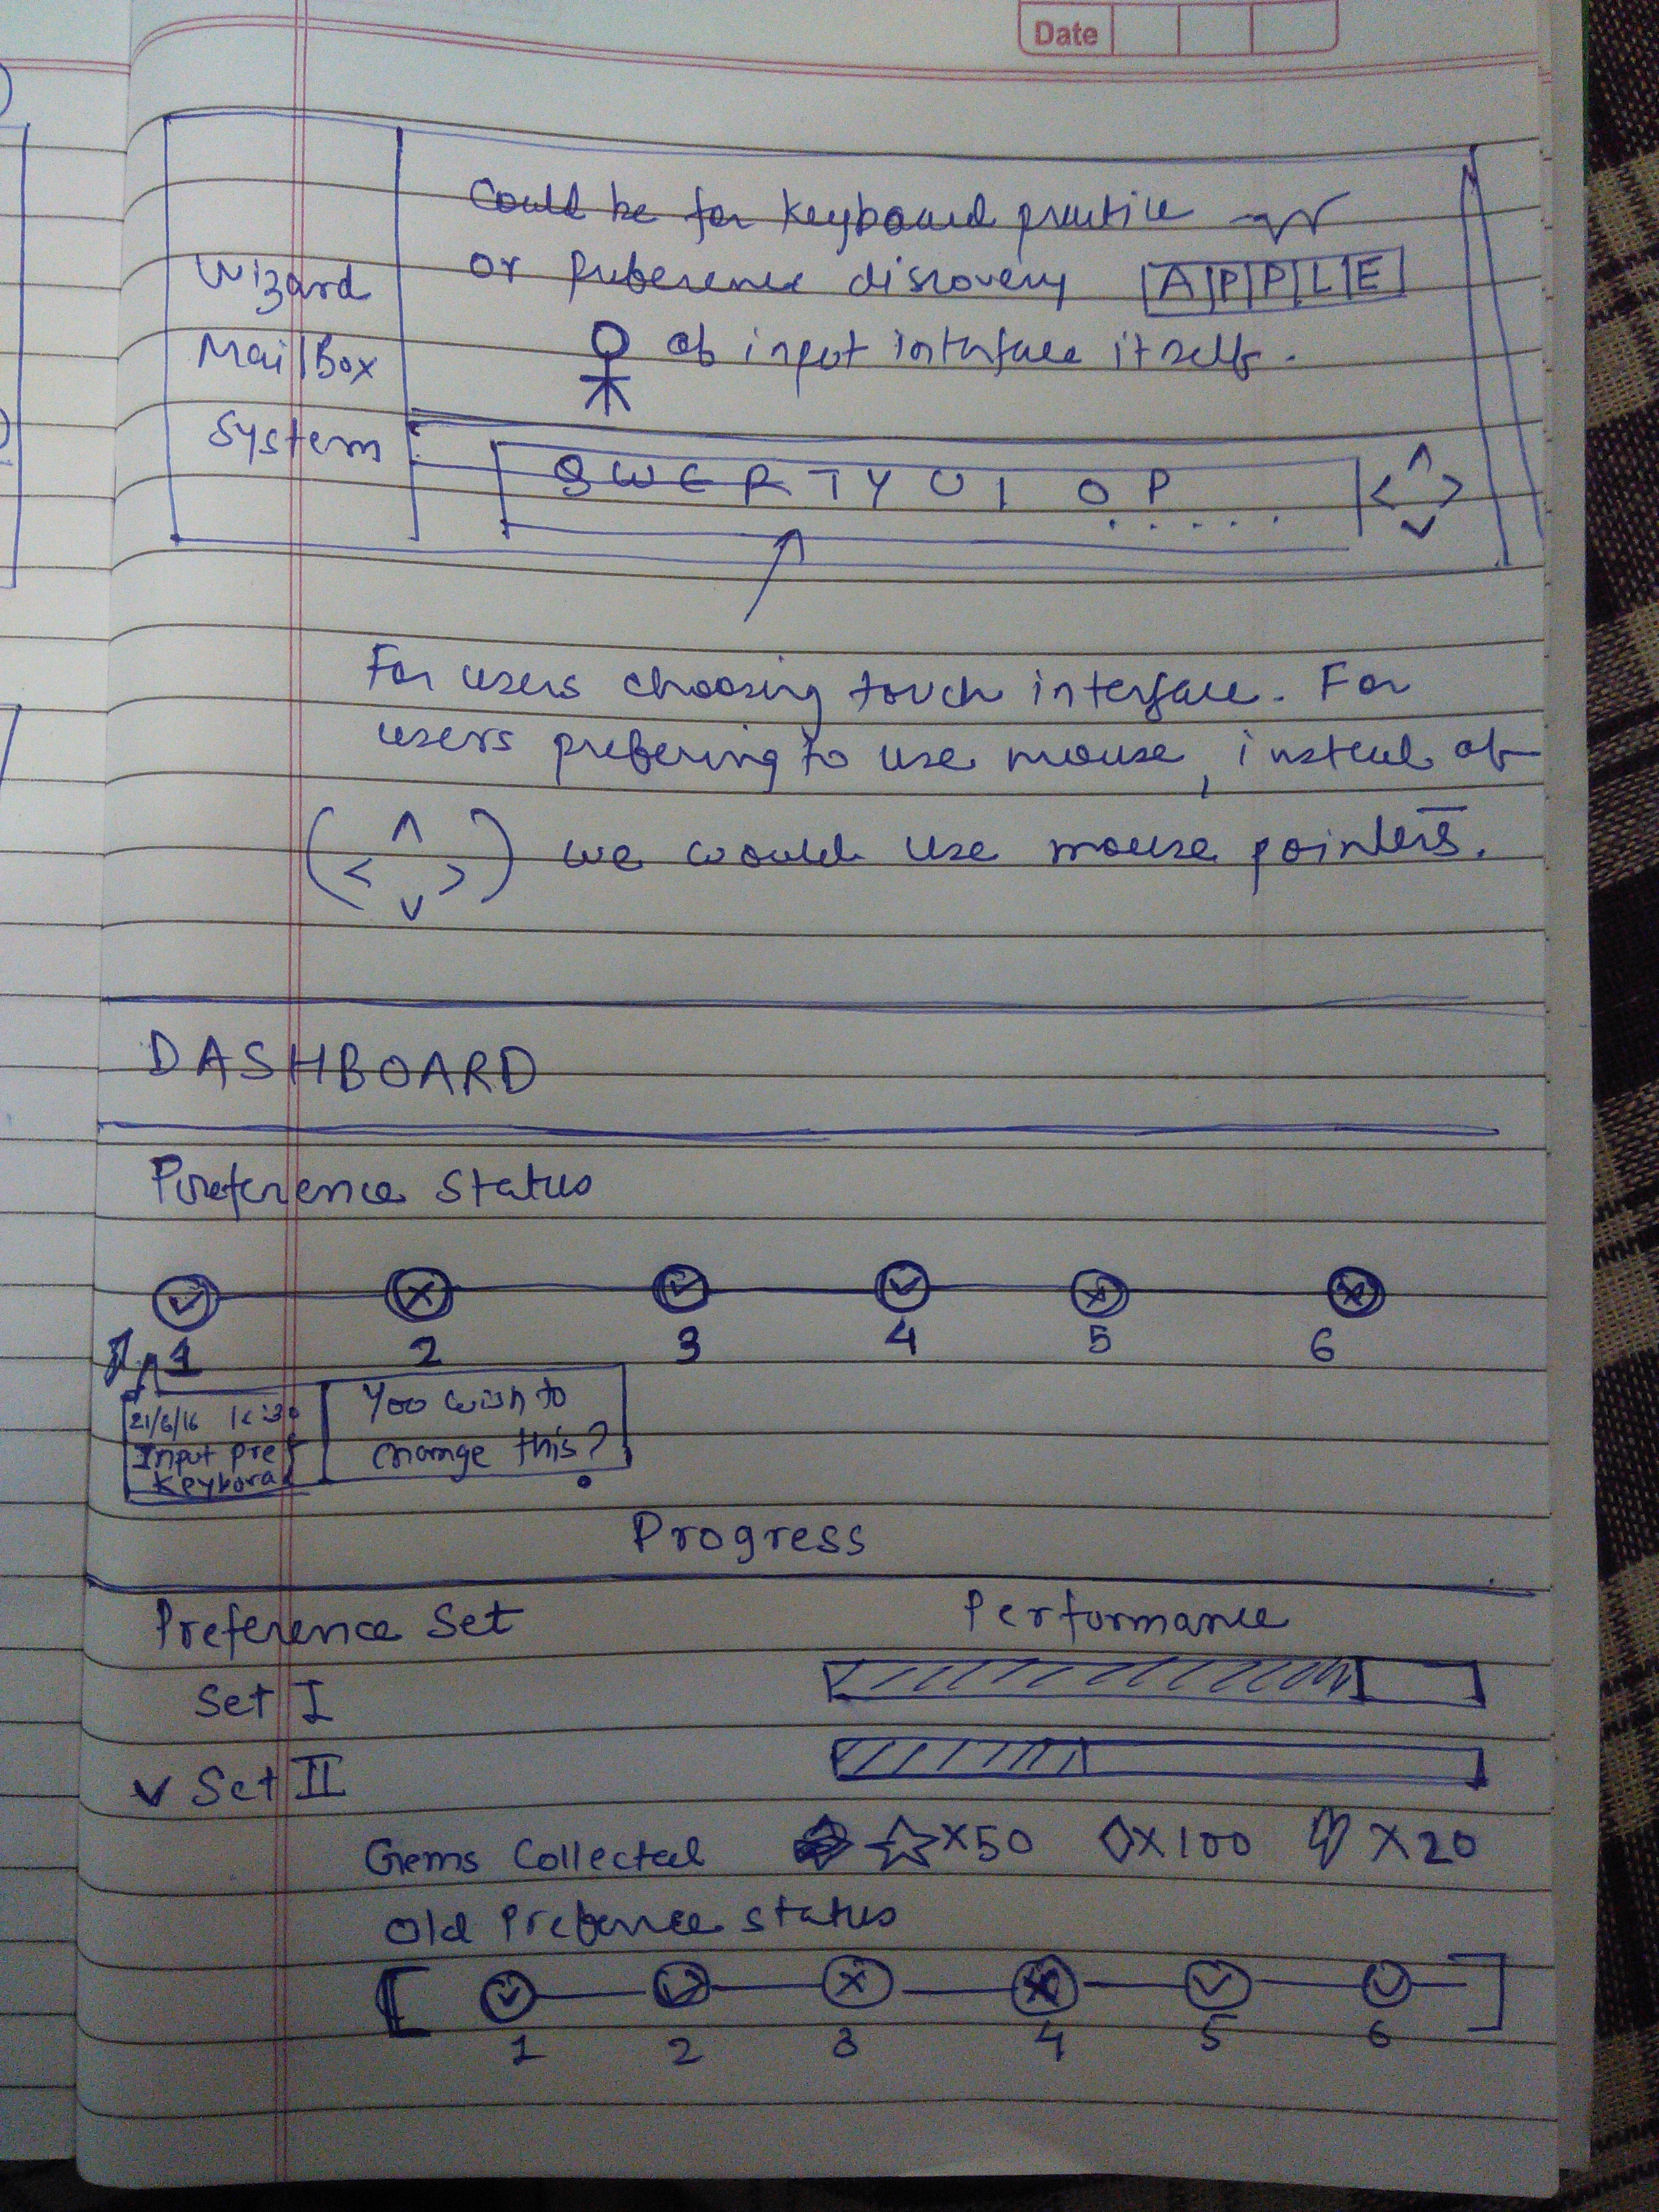 Date
Could be for keyboard practice
or preference discovery A P P L E
of input interface itself.
Wizard
MailBox
System
Q W E R T Y U I O P . . . . .
For users choosing touch interface. For
users prefering to use mouse, instead of
( < ^ v > ) we would use mouse pointers.
DASHBOARD
Preference Status
1 2 3 4 5 6
21/6/16
Input pref
You wish to
change this?
Progress
Preference Set Performance
Set I
✓ Set II
Gems Collected ☆ X50 ◇X100 X20
Old Preference status
[ 1 2 3 4 5 6 ]